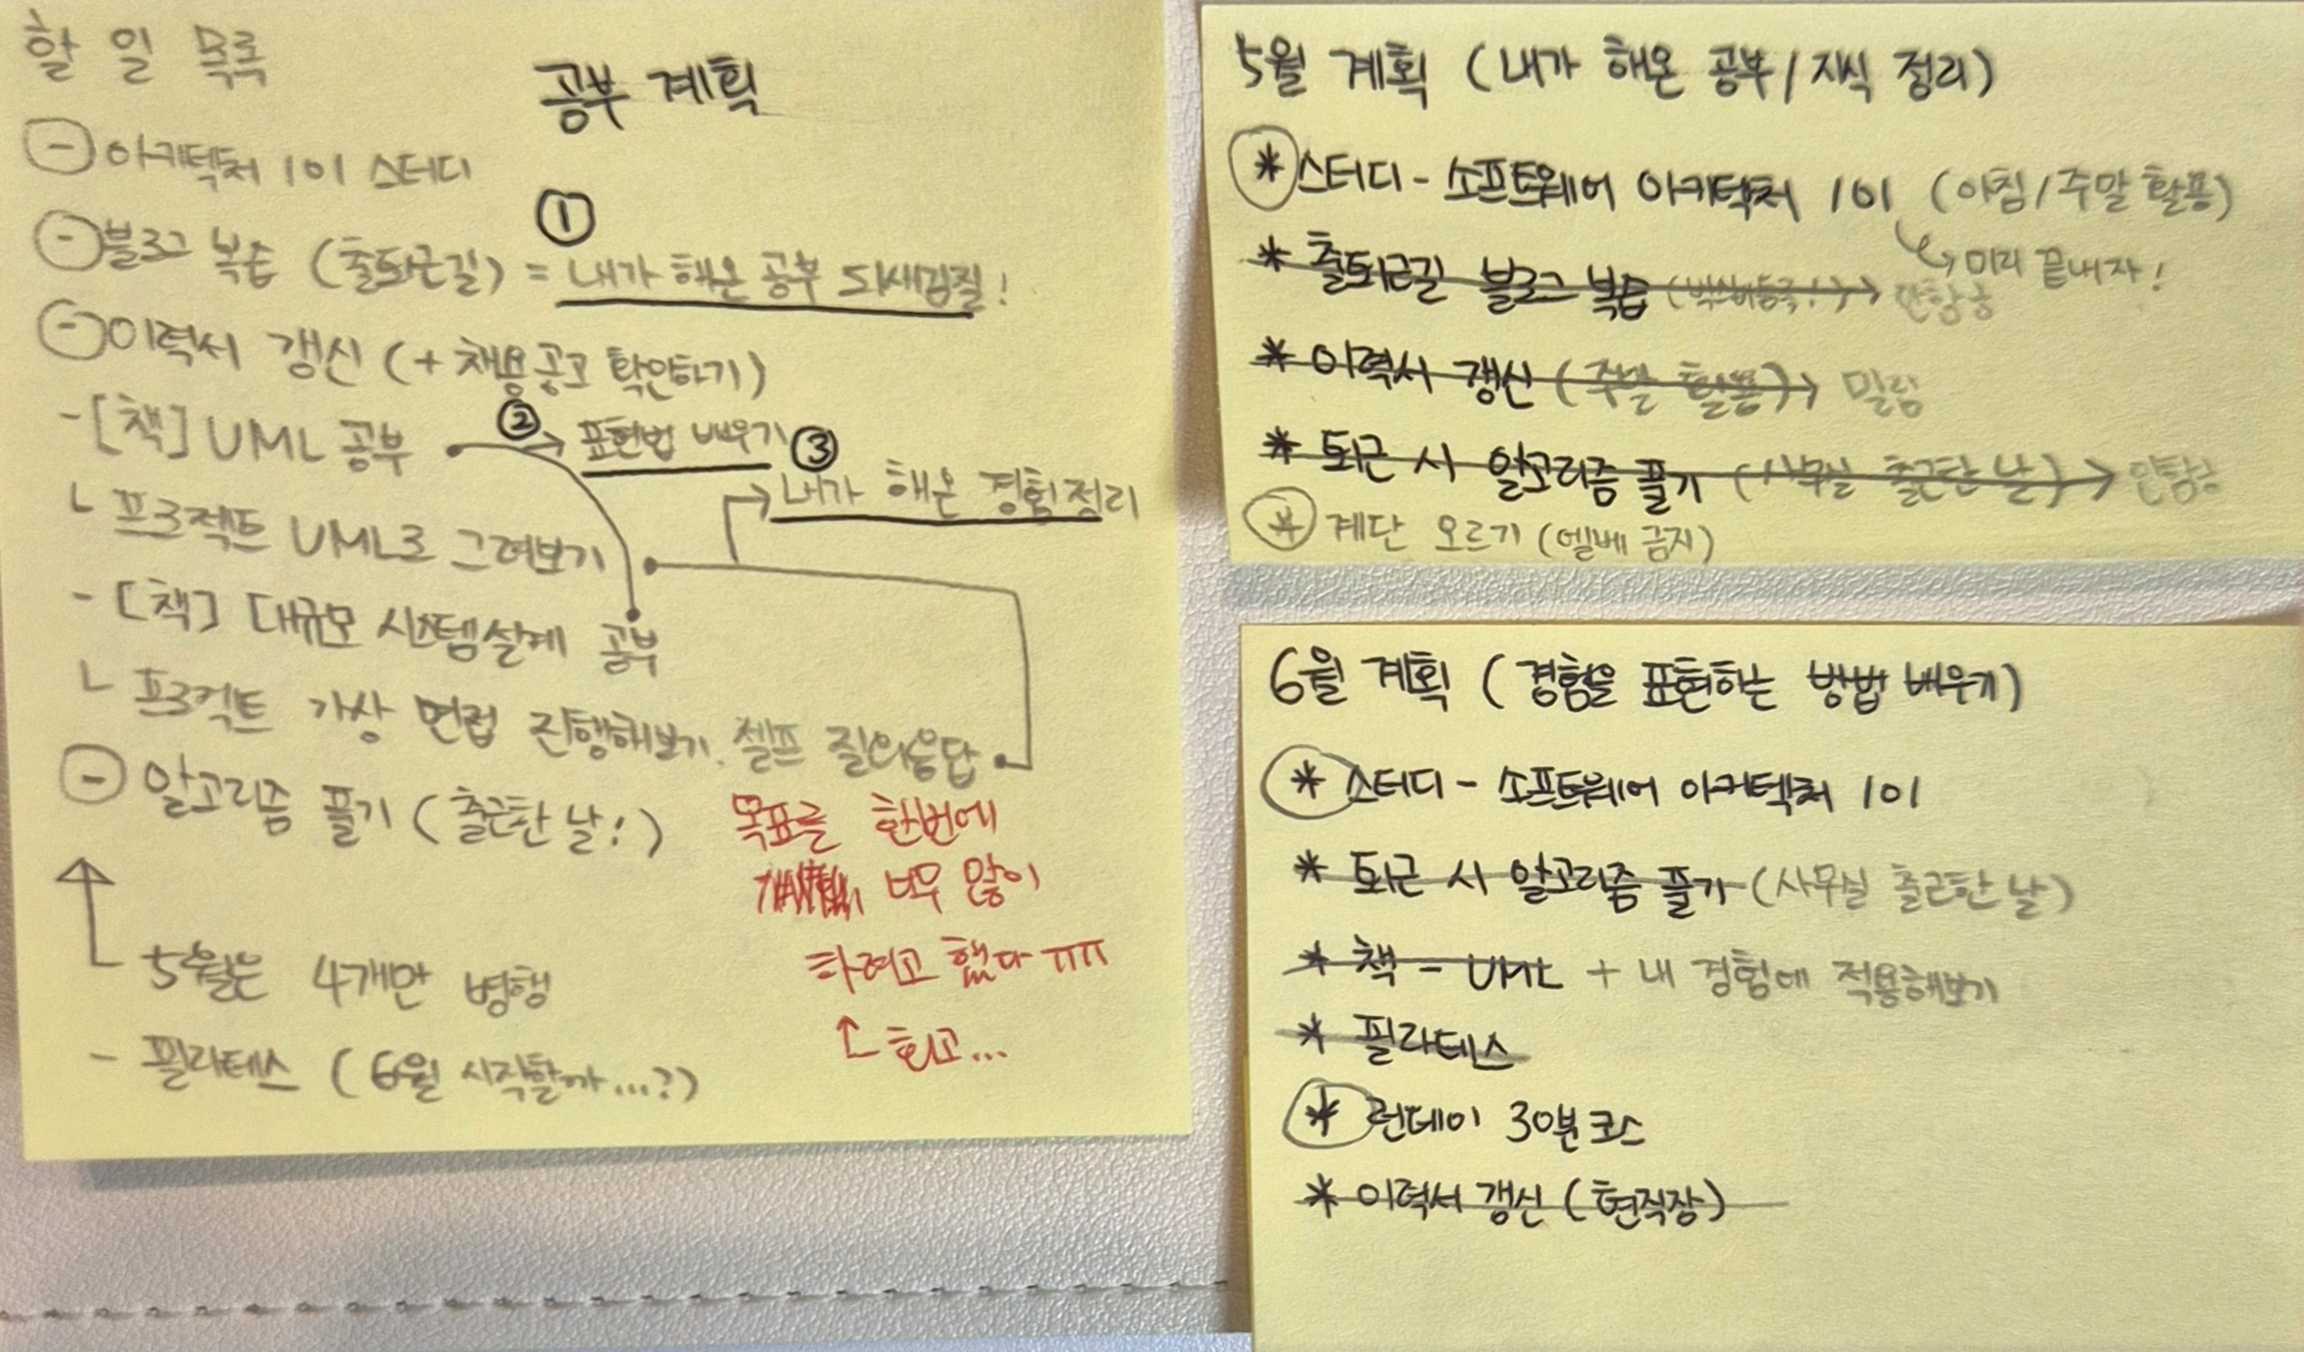 할 일 목록
공부 계획
- 아키텍처 101 스터디
①
- 블로그 복습 (출퇴근길) = 내가 해온 공부 되새김질!
- 이력서 갱신 (+ 채용공고 확인하기)
- [책] UML 공부 ② → 표현법 배우기
③ → 내가 해온 경험정리
ㄴ 프로젝트 UML로 그려보기
- [책] 대규모 시스템설계 공부
ㄴ 프로젝트 가상 면접 진행해보기. 셀프 질의응답
- 알고리즘 풀기 (출근한 날!)
5월은 4개만 병행
- 필라테스 (6월 시작할까...?)
목표를 한번에
너무 많이
하려고 했다 ㅠㅠ
회고...
5월 계획 (내가 해온 공부/지식 정리)
* 스터디 - 소프트웨어 아키텍처 101 (아침/주말 활용)
→ 미리 끝내자!
* 출퇴근길 블로그 복습 → 안함
* 이력서 갱신 (주말 활용) → 밀림
* 퇴근 시 알고리즘 풀기 (사무실 출근한 날) → 안함
* 계단 오르기 (엘베 금지)
6월 계획 (경험을 표현하는 방법 배우기)
* 스터디 - 소프트웨어 아키텍처 101
* 퇴근 시 알고리즘 풀기 (사무실 출근한 날)
* 책 - UML + 내 경험에 적용해보기
* 필라테스
* 런데이 30분 코스
* 이력서 갱신 (현직장)